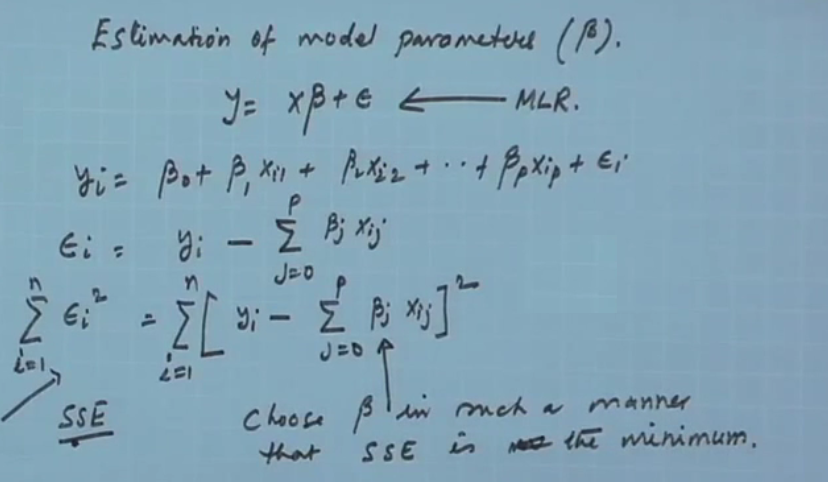 Estimation of model parameters (β).
y = xβ + ϵ ← MLR.
yi = β0 + β1 xi1 + β2 xi2 + ·· + βp xip + ϵi
ϵi = yi − Σ_{J=0}^{p} βj xij
Σ_{i=1}^{n} ϵi² = Σ_{i=1}^{n} [ yi − Σ_{J=0}^{p} βj xij ]²
SSE
Choose β in such a manner
that SSE is the minimum.